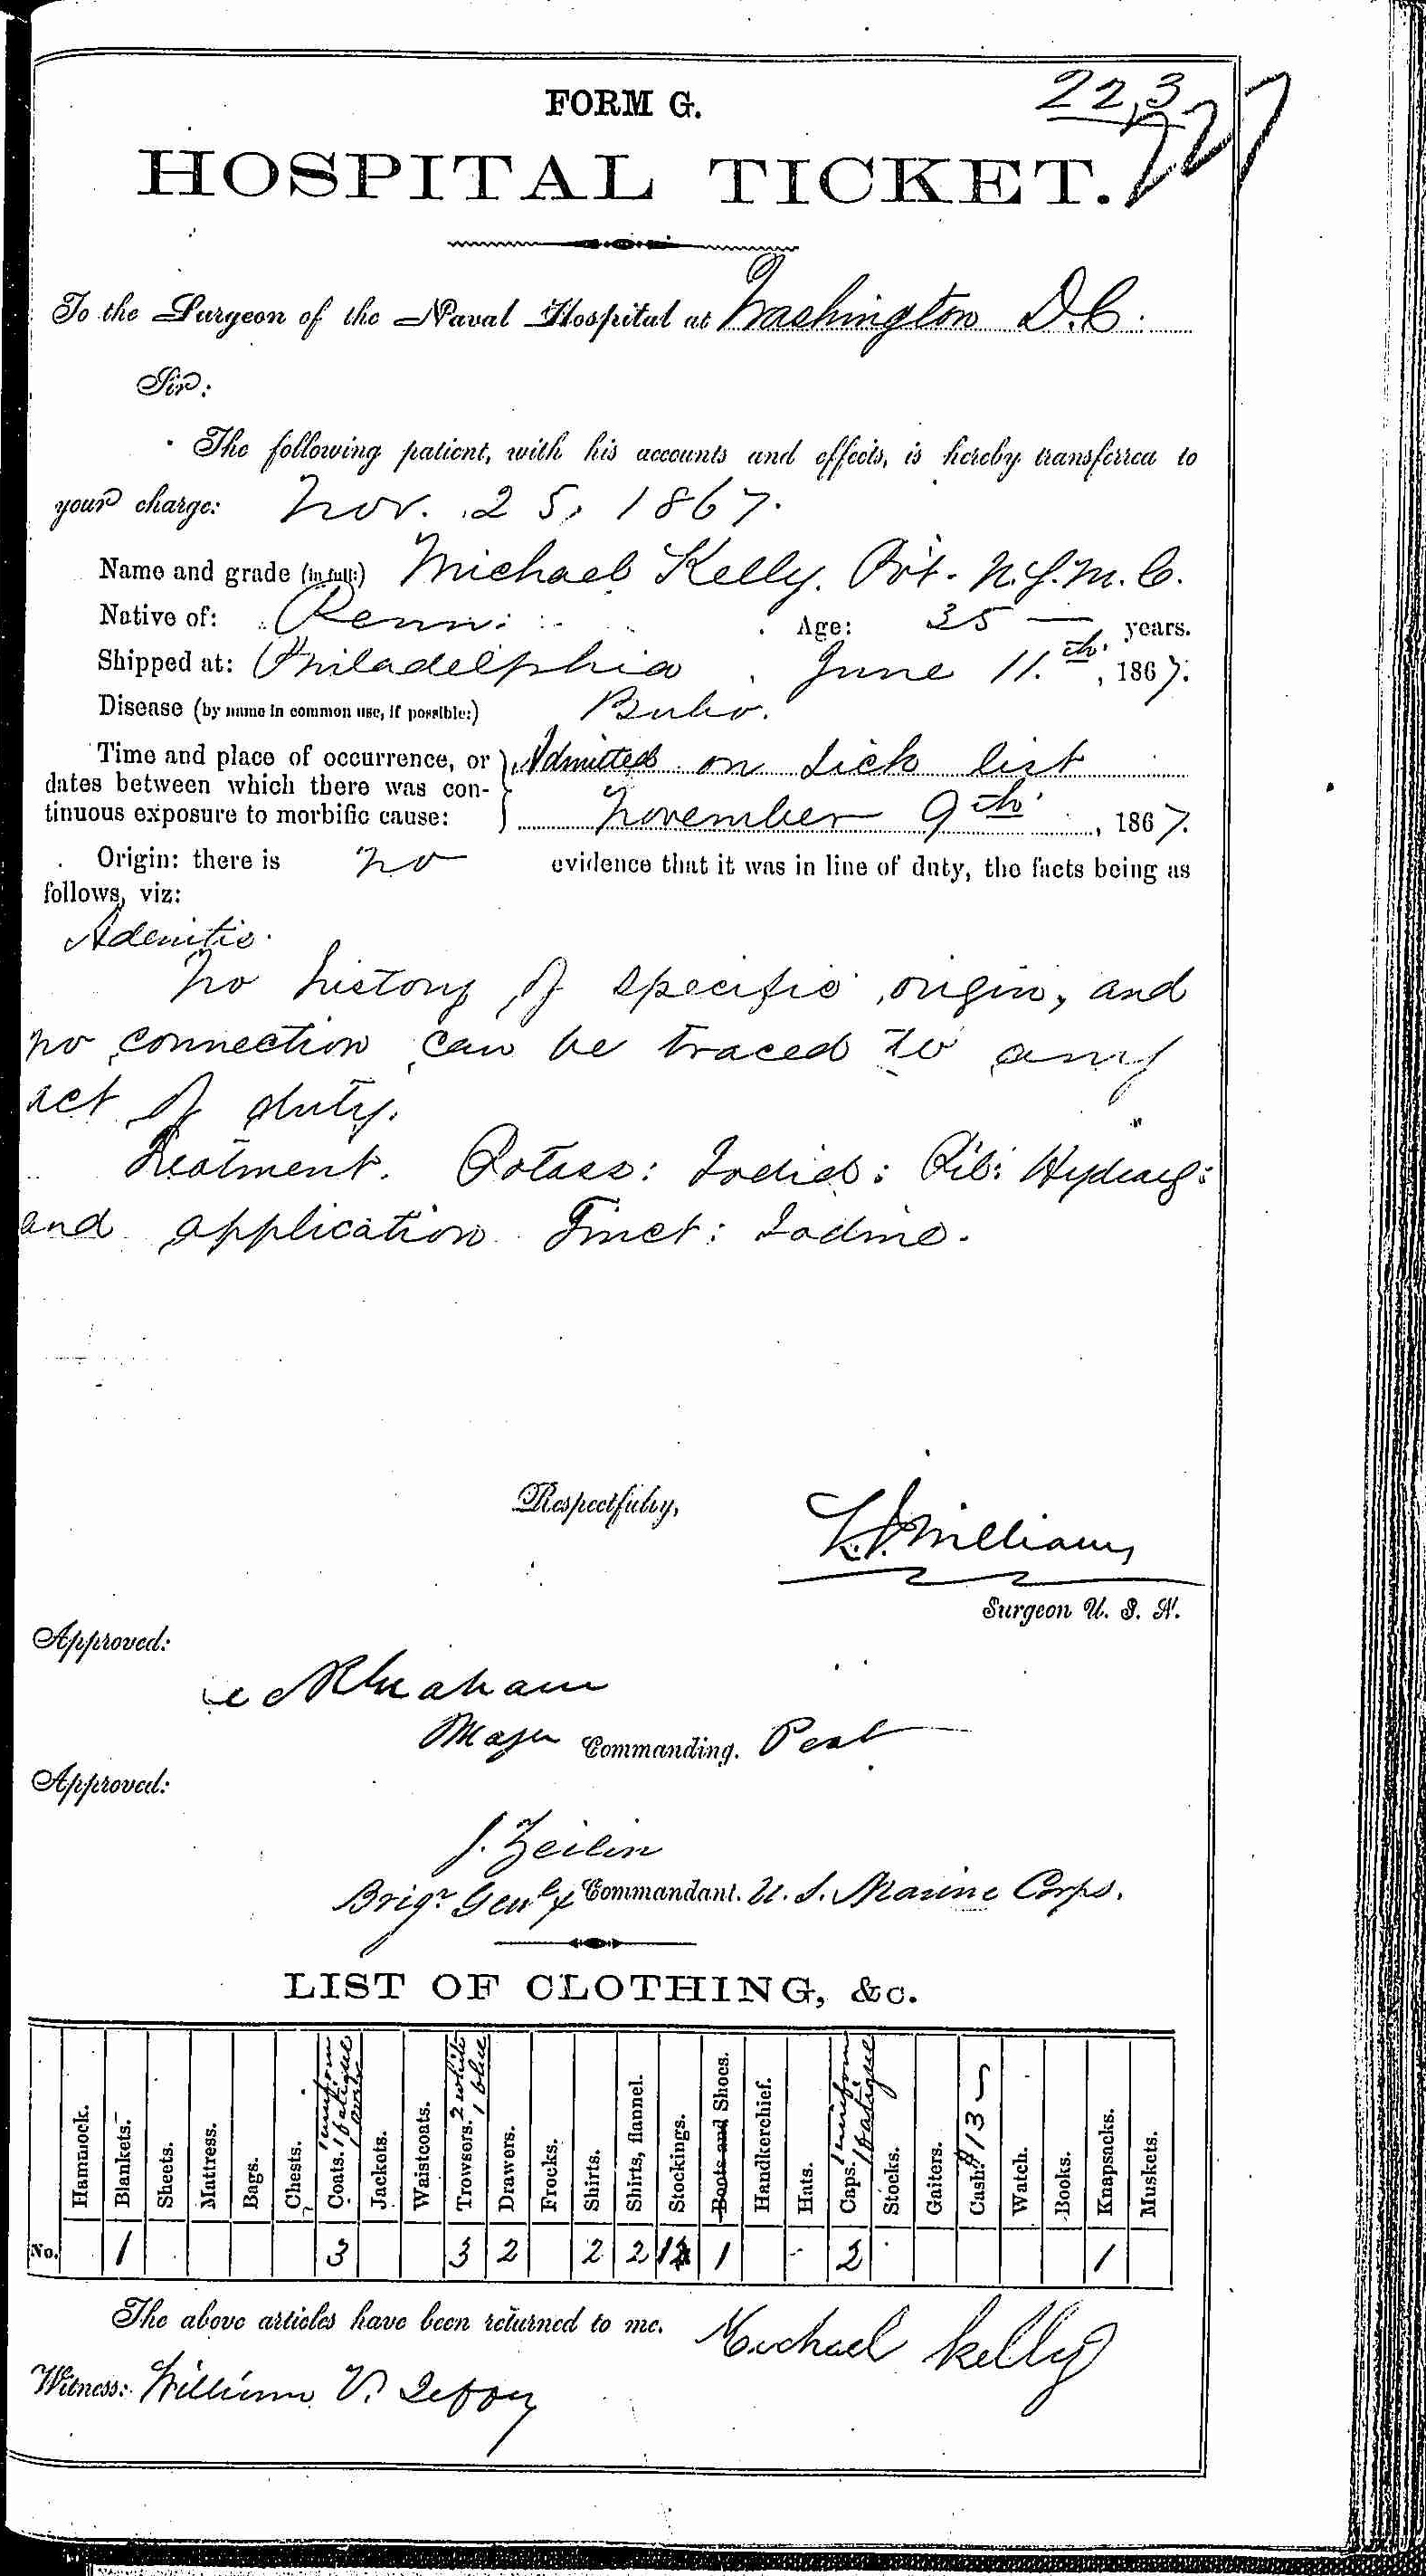 FORM G.
223
727
HOSPITAL TICKET.
To the Surgeon of the Naval Hospital at Washington D.C.
Sir:
The following patient, with his accounts and effects, is hereby transferred to
your charge: Nov. 25, 1867.
Name and grade (in full:) Michael Kelly. Pvt. U.S.M.C.
Native of: Penn: Age: 35 — years.
Shipped at: Philadelphia June 11.th, 1867.
Disease (by name in common use, if possible:) Bubo.
Time and place of occurrence, or } Admitted on Sick list
dates between which there was con-
tinuous exposure to morbific cause: November 9th, 1867.
Origin: there is no evidence that it was in line of duty, the facts being as
follows, viz:
Adenitis.
No history of specific origin, and
no connection can be traced to any
act of duty.
Treatment. Potass: Iodid: Pil: Hydrarg:
and application Tinct: Iodine.
Respectfully,
Williams
Surgeon U. S. N.
Approved:
Graham
Major Commanding. Post
Approved:
J. Zeilin
Brigr Genl & Commandant. U. S. Marine Corps.
LIST OF CLOTHING, &c.
Hammock. Blankets. Sheets. Mattress. Bags. Chests. Coats. 1 uniform 1 fatigue Jackets. Waistcoats. Trowsers. 2 white 1 blue Drawers. Frocks. Shirts. Shirts, flannel. Stockings. Boots and Shoes. Handkerchief. Hats. Caps. 1 uniform 1 fatigue Stocks. Gaiters. Cash. $13 Watch. Books. Knapsacks. Muskets.
No. 1 3 3 2 2 2 1 2 1
The above articles have been returned to me. Michael Kelly
Witness: William V.